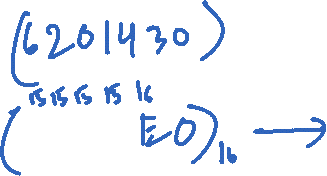 (6201430)
15 15 15 15 16
( E0)16 →